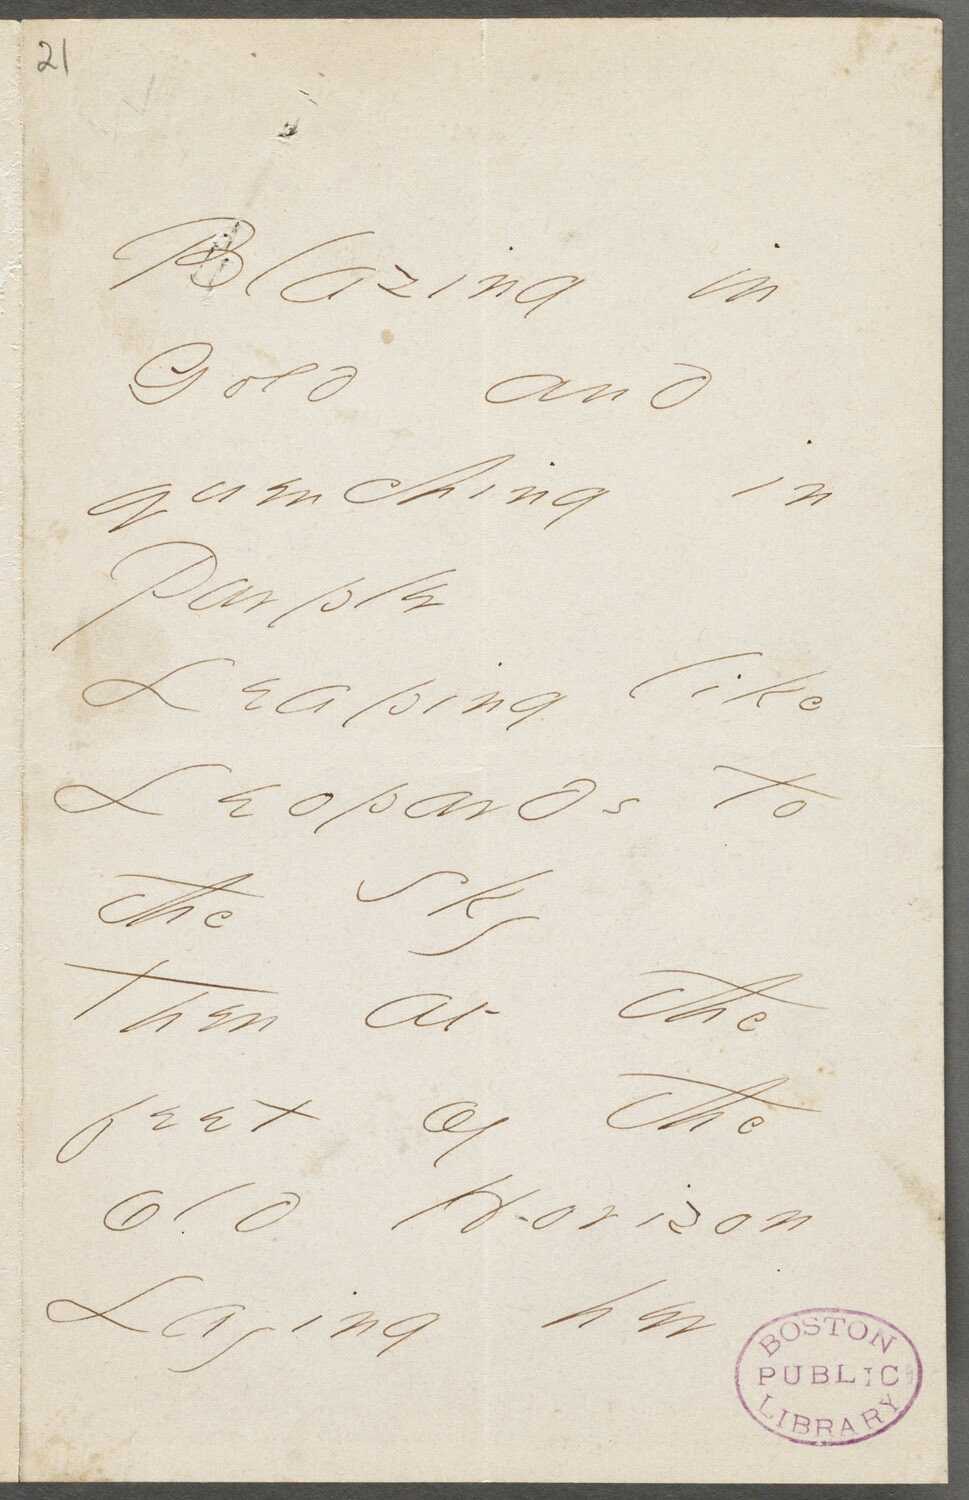 21
Blazing in
Gold and
quenching in
Purple
Leaping like
Leopards to
the Sky
Then at the
feet of the
old Horizon
Laying her
BOSTON
PUBLIC
LIBRARY